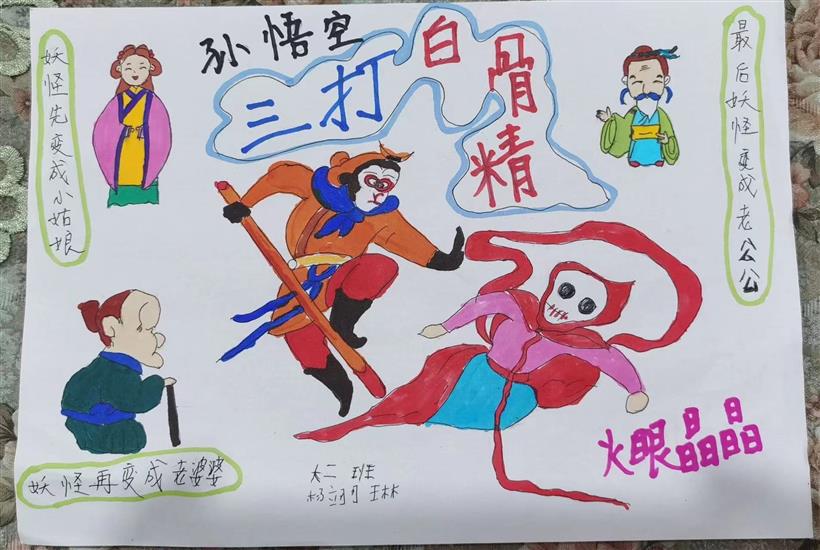 孙悟空
三打白骨精
妖怪先变成小姑娘
最后妖怪变成老公公
妖怪再变成老婆婆
火眼晶晶
大二 班
杨 琳